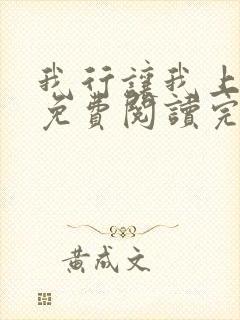 我行讓我上
免費閱讀完
黃成文